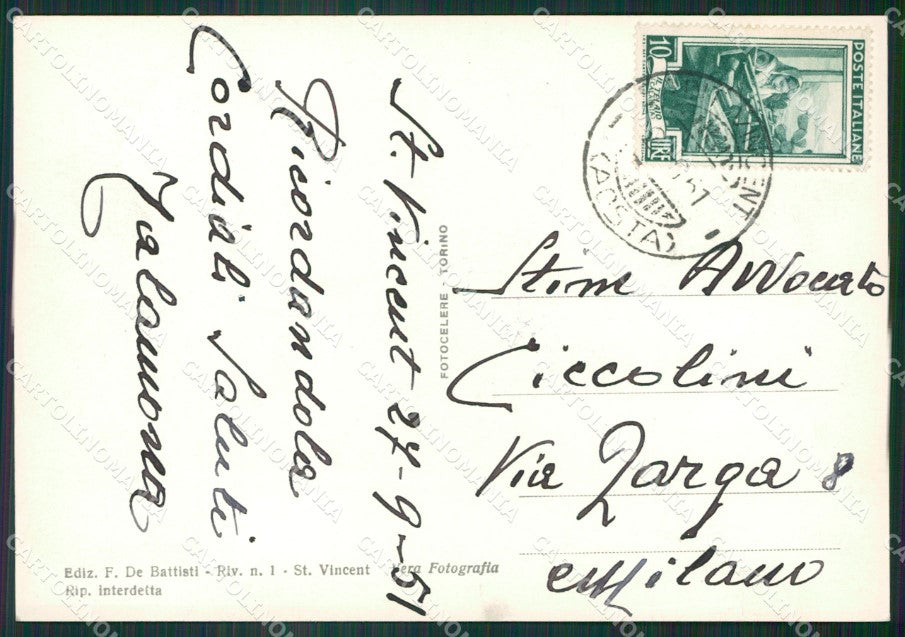 St. Vincent 27-9-51
Ricordandola
Cordiali Saluti
FOTOCELERE · TORINO
10
LIRE
POSTE ITALIANE
(AOSTA)
Stim Avvocato
Ciccolini
Via Zarga 8
Milano
Ediz. F. De Battisti - Riv. n. 1 - St. Vincent Vera Fotografia
Rip. interdetta
CARTOLINOMANIA